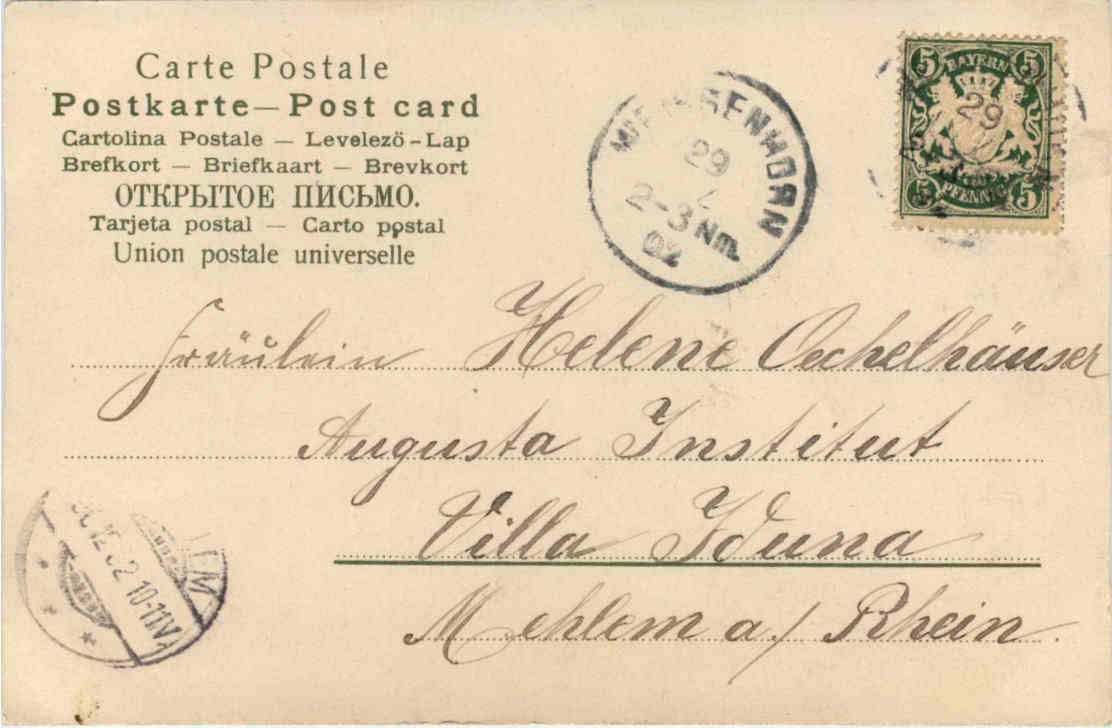 Carte Postale
Postkarte — Post card
Cartolina Postale — Levelező-Lap
Brefkort — Briefkaart — Brevkort
ОТКРЫТОЕ ПИСЬМО.
Tarjeta postal — Carto postal
Union postale universelle
5 BAYERN 5
5 PFENNIG 5
29
WEISSENHORN
29
2-3 Nm.
02
Fräulein Helene Oechelhäuser
Augusta Institut
Villa Iduna
Mehlem a/ Rhein.
10-11V.